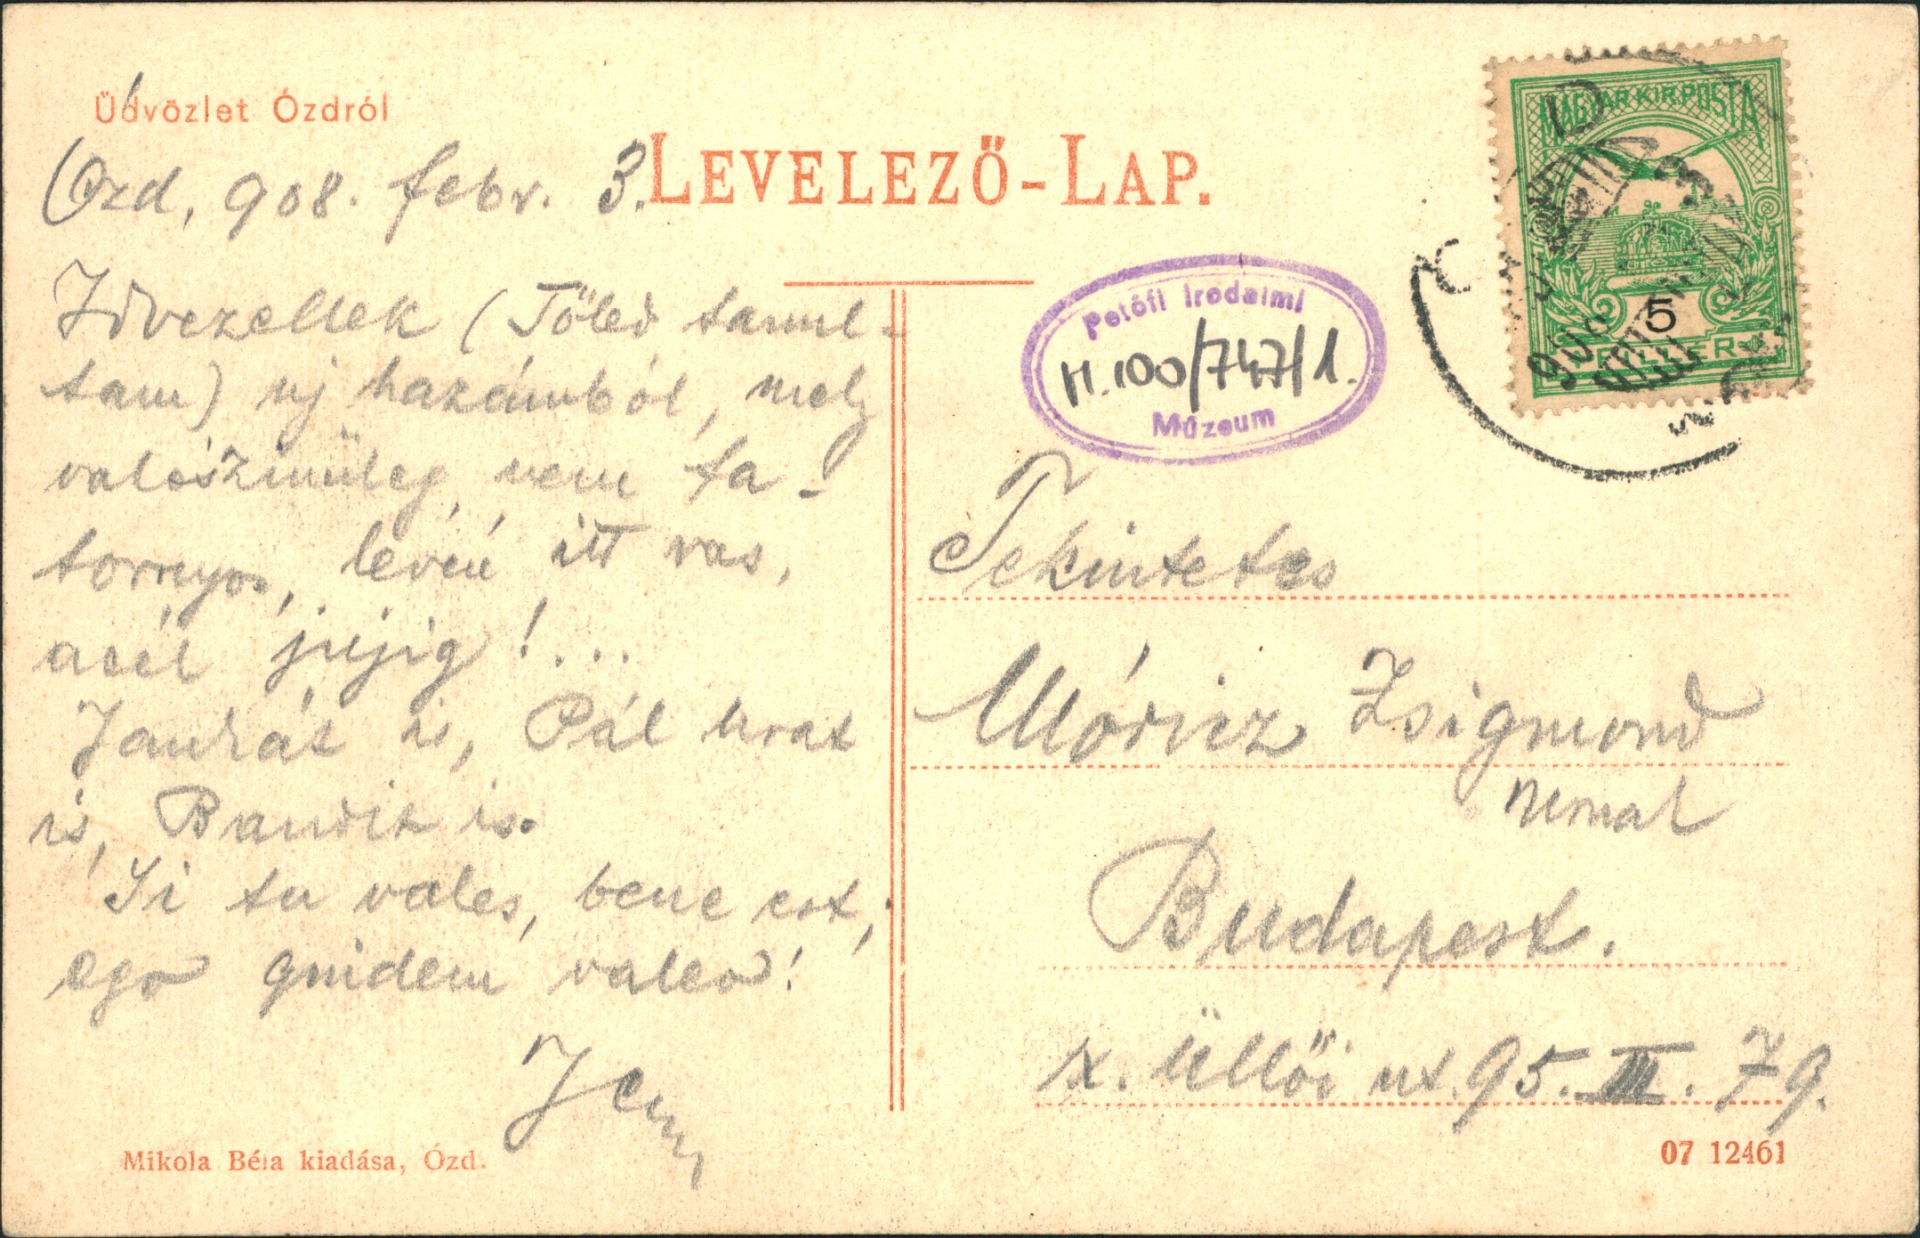 Üdvözlet Ózdról
Ózd, 908. febr. 3.
LEVELEZŐ-LAP.
Idvezellek (Tőled tanul-
tam) uj hazámból, mely
valószinüleg nem ta-
tornyos, lévén itt vas,
acél
Jankát is, Pál urat
is, Bandit is.
Si tu vales, bene est,
ego quidem valeo!
Jenő
Mikola Béla kiadása, Ózd.
MAGYAR KIR. POSTA
5
FILLÉR
Petőfi Irodalmi
M.100/747/1.
Múzeum
Tekintetes
Móricz Zsigmond
urnak
Budapest.
IX. Üllői ut 95. III. 79.
07 12461